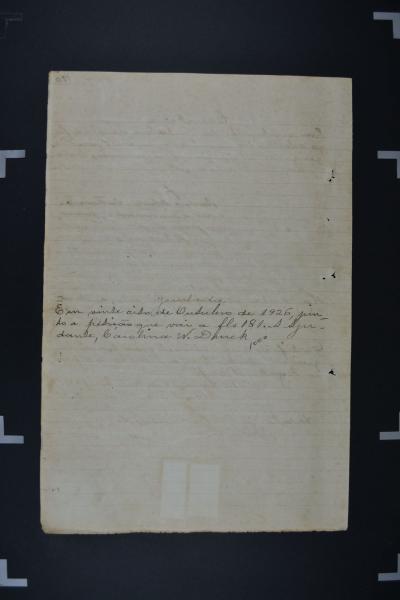 Juntada
Em vinte oito de Outubro de 1926, jun-
to a petição que vai a fls 181. A Aju-
dante, Carolina N.